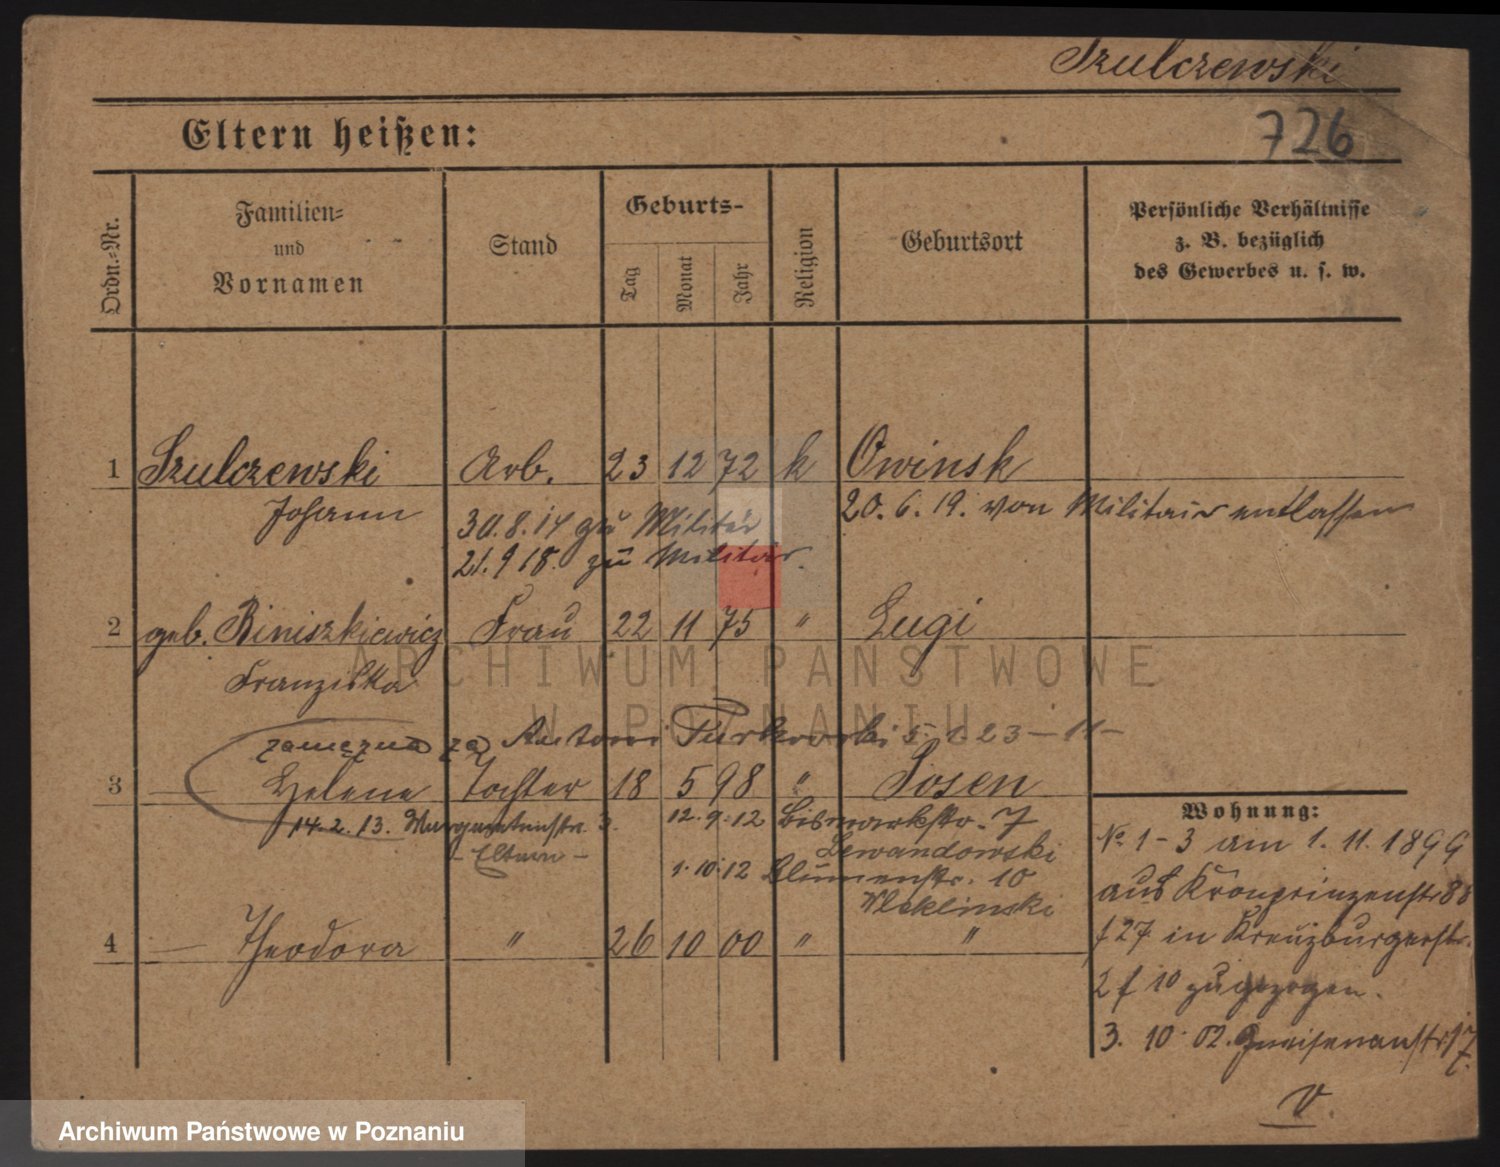 Szulczewski
726
Eltern heißen:
Ordn.-Nr.
Familien-
und
Vornamen
Stand
Geburts-
Tag
Monat
Jahr
Religion
Geburtsort
Persönliche Verhältnisse
z. B. bezüglich
des Gewerbes u. s. w.
1 Szulczewski Arb. 23 12 72 k Owinsk
Johann
30.8.14 zu Militär
20. 6. 19. von Militair entlassen
21.9 18. zu Militär.
2 geb. Biniszkiewicz Frau 22 11 75 " Lugi
Franziska
zamężna za Antoni 23-11-
3 — Helene Tochter 18 5 98 " Posen
14.2.13. 3.
- Eltern -
12.9.12 Bismarkstr. 7
Lewandowski
1.10.12 Blumenstr. 10
4 — Theodora " 26 10 00 " "
Wohnung:
No 1-3 am 1. 11. 1899
aus Kronprinzenstr 88
f 27 in Kreuzburgerstr.
2 f 10 zugezogen.
3. 10. 02. Gneisenaustr 17.
V.
ARCHIWUM PAŃSTWOWE
W POZNANIU
Archiwum Państwowe w Poznaniu